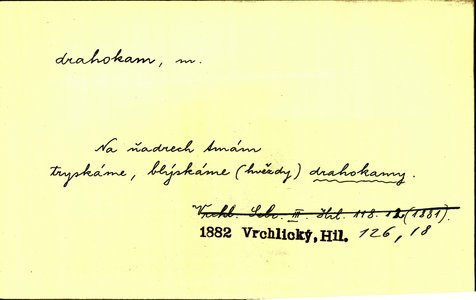 drahokam, m.
Na ňadrech tmám
tryskáme, blýskáme (hvězdy) drahokamy.
Vrchl. Sebr. III. Hil. 118. 12 (1881).
1882 Vrchlický, Hil. 126, 18